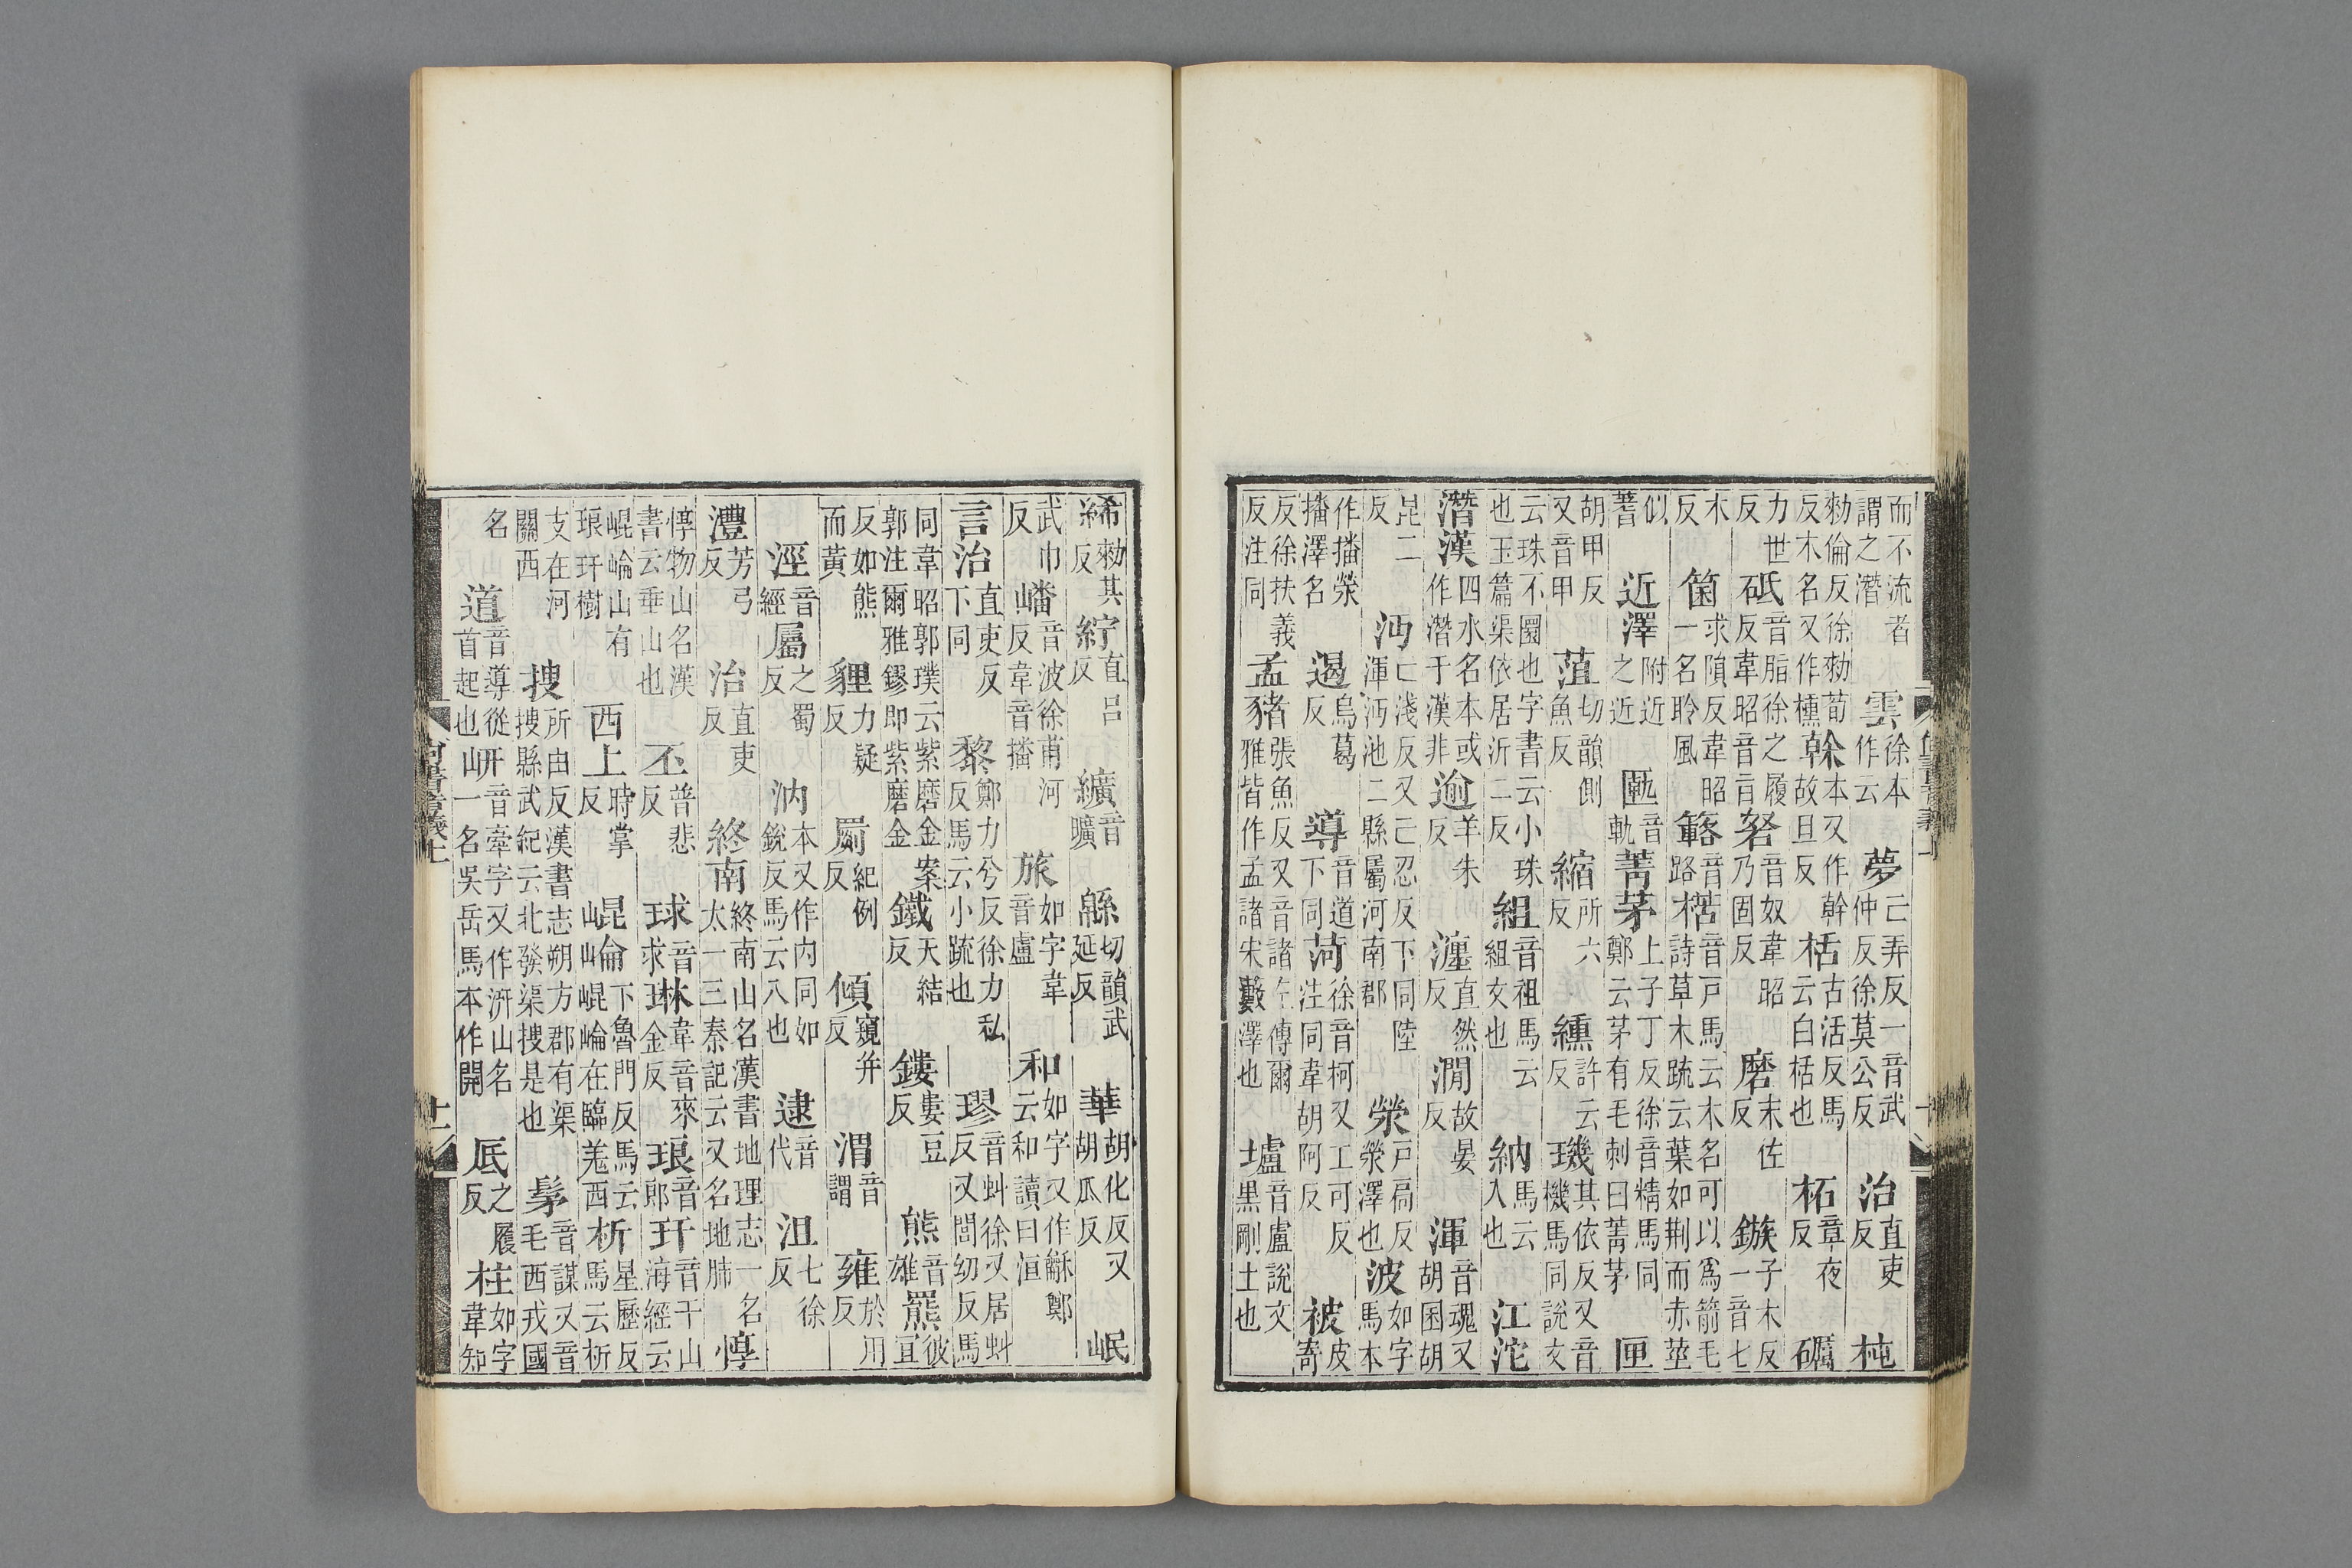 而不流者謂之潛 雲徐本作云 夢亡弄反一音武仲反徐莫公反 治直吏反 杶
勑倫反徐勑荀反木名又作櫄 榦本又作幹故旦反 栝古活反馬云白栝也 柘章夜反 礪
力世反 砥音脂徐之履反韋昭音旨 砮音奴韋昭乃固反 磨末佐反 鏃子木反一音七
木反 箘求隕反韋昭一名聆風 簵音路 楛音戶馬云木名可以爲箭毛詩草木疏云葉如荆而赤莖
似蓍 近澤附近之近 匭音軌 菁茅上子丁反徐音精馬同鄭云茅有毛刺曰菁茅 匣
胡甲反又音甲 菹切韻側魚反 縮所六反 纁許云反 璣其依反又音機馬同說文
云珠不圜也字書云小珠也玉篇渠依居沂二反 組音祖馬云組文也 納馬云入也 江沱
潛漢四水名本或作潛于漢非 逾羊朱反 瀍直然反 澗故晏反 渾音魂又胡囷胡
昆二反 沔亡淺反又亡忍反下同陸渾沔池二縣屬河南郡 滎戶扃反滎澤也 波如字馬本
作播滎播澤名 遏烏葛反 導音道下同 菏徐音柯又工可反注同韋胡阿反 被皮寄
反徐扶義反注同 孟豬張魚反又音諸左傳爾雅皆作孟諸宋藪澤也 壚音盧說文黑剛土也
絺勑其反 紵直呂反 纊音曠 緜切韻武延反 華胡化反又胡瓜反 岷
武巾反 嶓音波徐甫河反韋音播 旅如字韋音盧 和如字又作龢鄭云和讀曰洹
言治直吏反下同 黎鄭力兮反徐力私反馬云小疏也 璆音虯徐又居虯反又閭幼反馬
同韋昭郭璞云紫磨金案郭注爾雅鏐即紫磨金 鐵天結反 鏤婁豆反 熊音雄 羆彼宜
反如熊而黃 貍力疑反 罽紀例反 傾窺井反 渭音謂 雍於用反
涇音經 屬之蜀反 汭本又作内同如銳反馬云八也 逮音代 沮七徐反
灃芳弓反 治直吏反 終南終南山名漢書地理志一名太一三秦記云又名地肺 惇
惇物山名漢書云垂山也 丕普悲反 球音求 琳韋音來金反 琅音郎 玕音干山海經云
崐崘山有琅玕樹 西上時掌反 崐崘下魯門反馬云崐崘在臨羌西 析星歷反馬云析
支在河關西 搜所由反漢書志朔方郡有渠搜縣武紀云北發渠搜是也 髳音謀又音毛西戎國
名 道音導從首起也 岍音牽字又作汧山名一名吳岳馬本作開 厎之履反 柱如字韋知